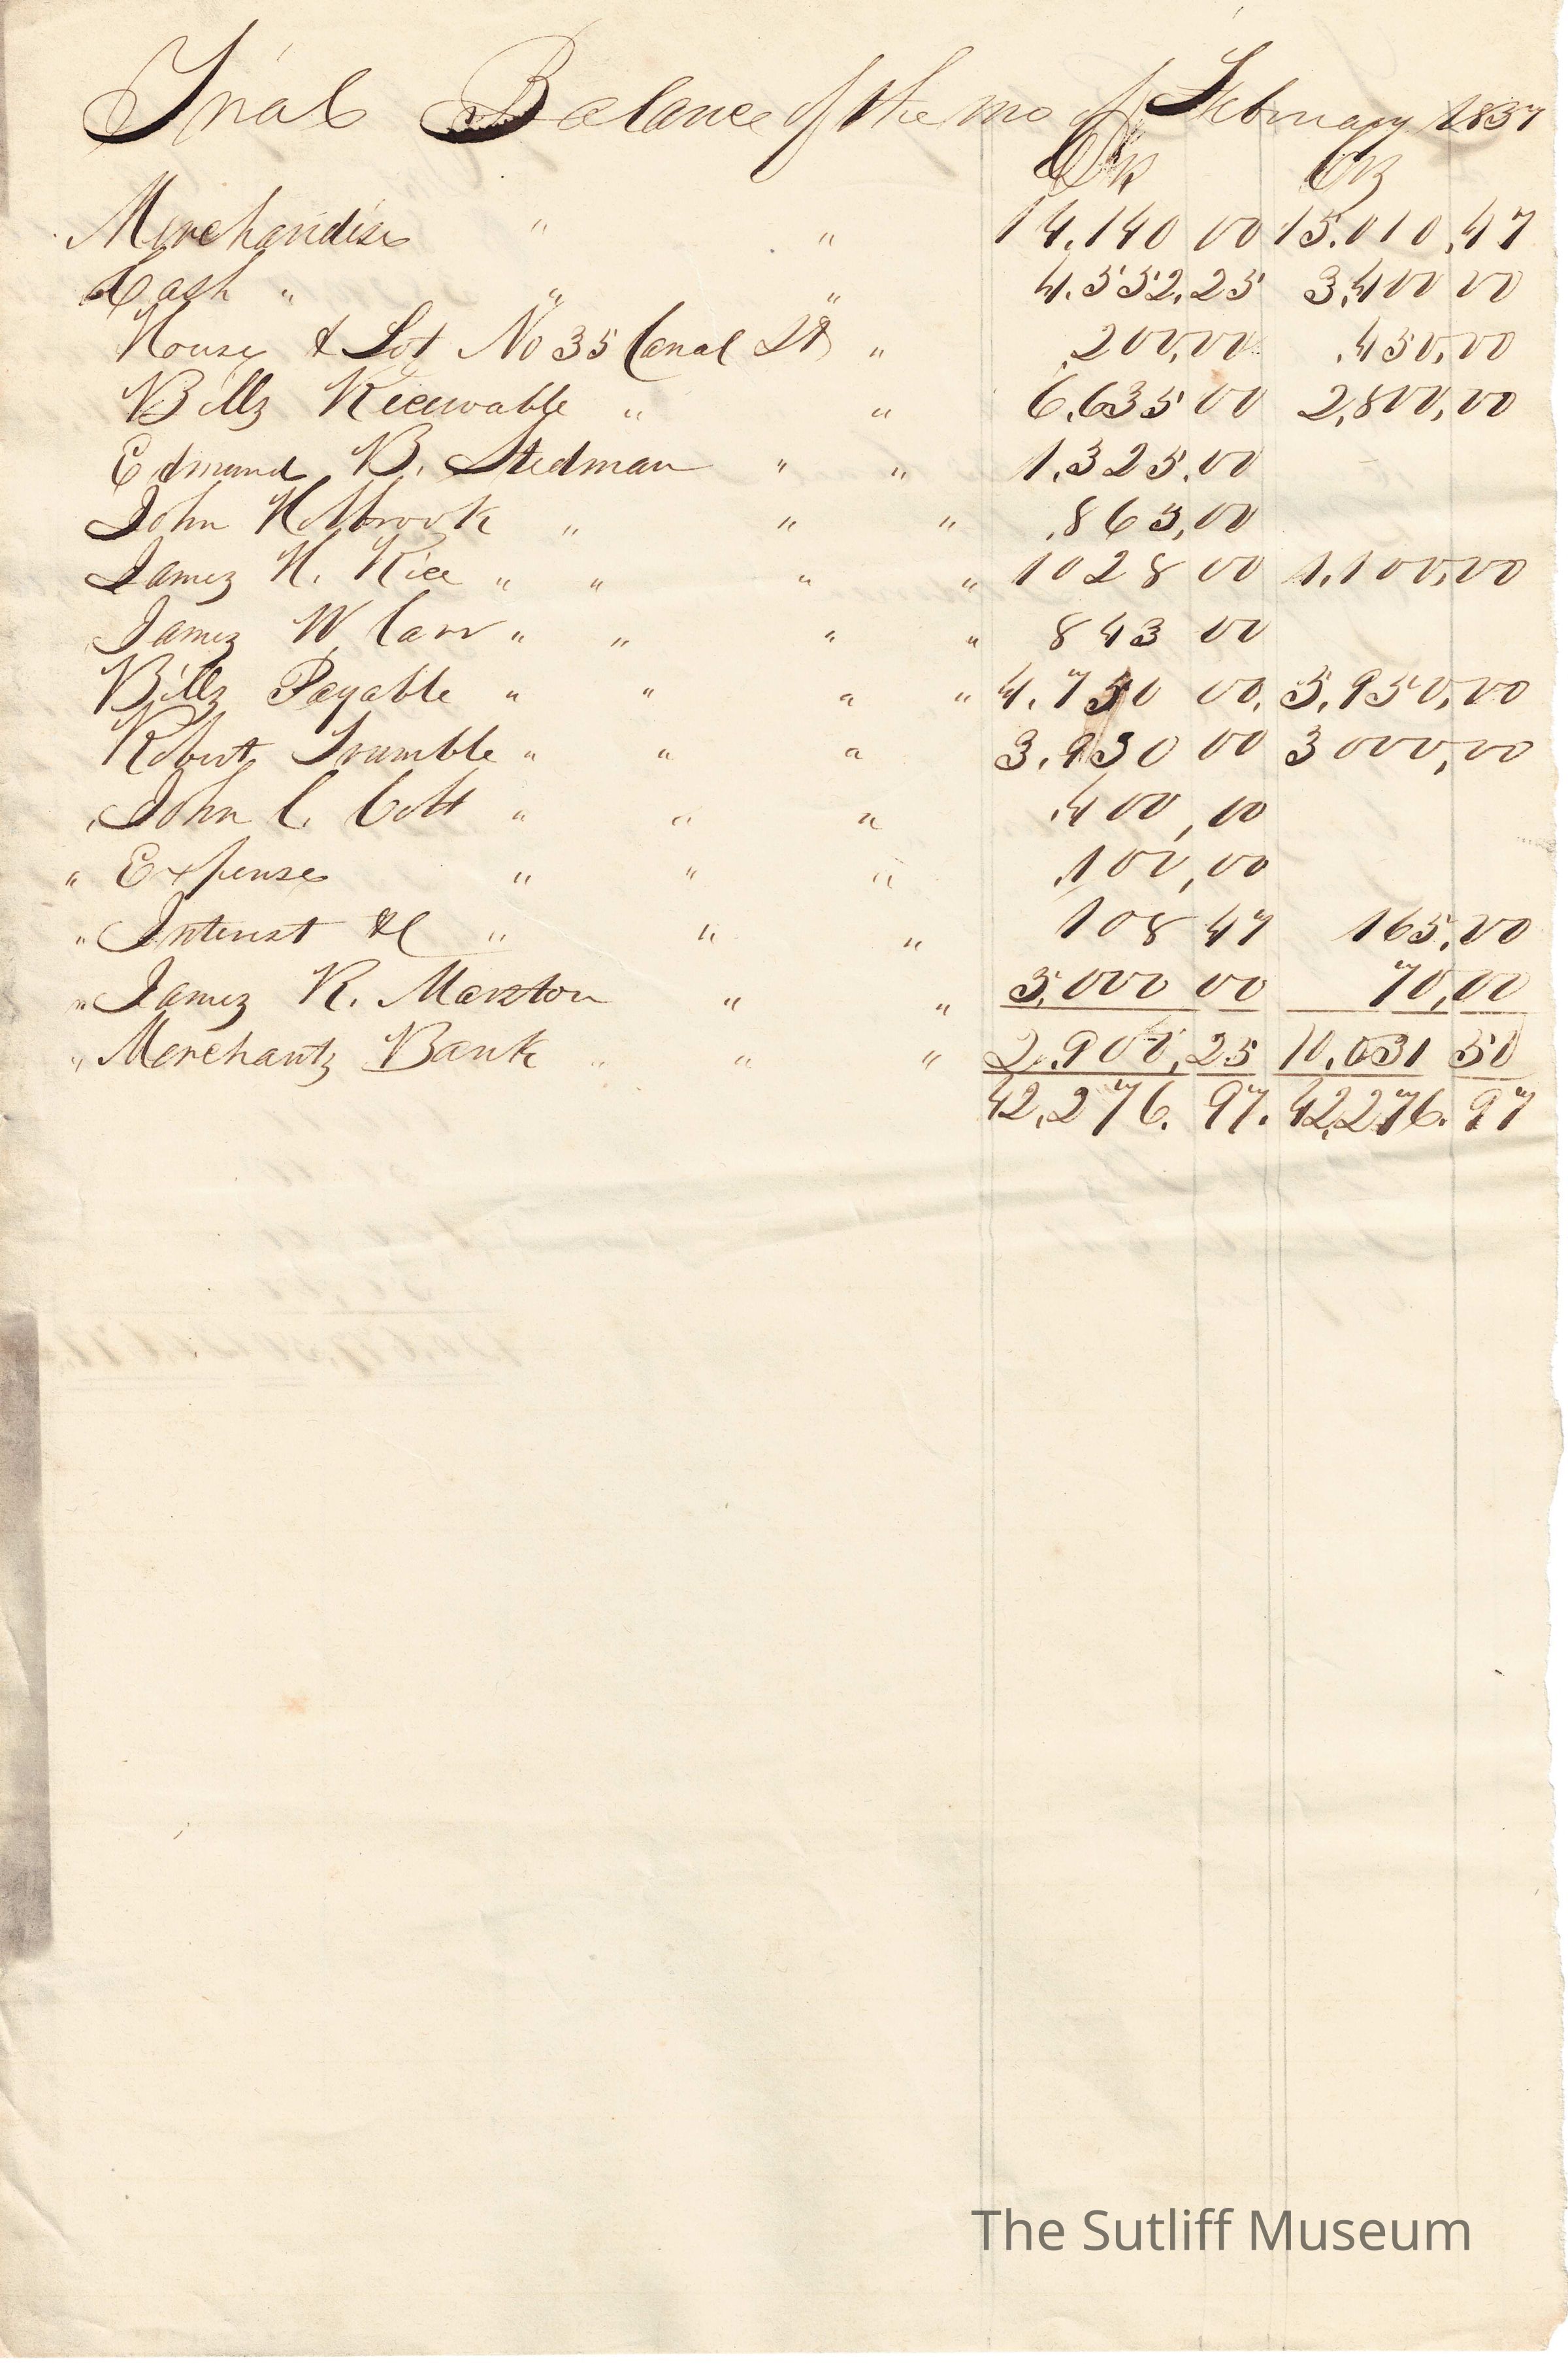 Trial Balance of the mo of February 1837
Dr Cr
Merchandise " " 14,140 00 15,010,47
Cash " " " 4,552,25 3,400 00
House & Lot No 35 Canal St " ,200,00 ,450,00
Bills Receivable " " 6,635 00 2,800,00
Edmund B. Stedman " " 1,325,00
John Holbrook " " " ,865,00
James H. Rice " " " " 1028 00 1,100,00
James W Carr " " " " 843 00
Bills Payable " " " " 4,750 00, 5,950,00
Robert Trumble " " " 3,930 00 3000,00
John C. Colt " " " ,400,00
" Expense " " " ,100,00
" Interest &c " " " 108 47 165,00
" James R. Marston " " 5,000 00 70,00
" Merchants Bank " " " 2,900,25 10,031 50
42,276. 97. 42,276. 97
The Sutliff Museum